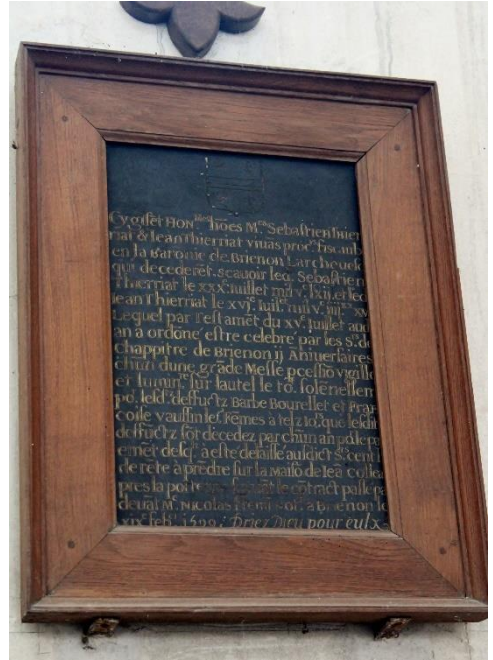 Cy gisēt HON.bles hōes M.es Sebastien thier
riat & Iean Thierriat vivās proc.rs fiscaulx
en la Baronie de Brienon Larcheuesq
qui decederēt. scauoir led. Sebastien
Thierriat le xxx.e Iuillet mil v.c lxij. et led
Iean Thierriat le xvj.e
Lequel par Testamēt du xv.e Iuillet aud
an a ordōné estre celebré par les s.rs de
chappitre de Brienon ij Aniuersaires
chūn dune grāde Messe pcessiō vigille
et lumin.re sur lautel le to.t solēnellem
po.r lesd. deffuctz Barbe Bourellet et Fran
coise vaussin les Fēmes a telz io.rs que lesdit
deffūctz sōt decedez par chūn an
desq.l a esté delaissé ausdict s.rs cent
de rēte à prēdre sur la Maisō de
pres la le cōtract passé pa
deuāt M.e NICOLAS a Brienon le
feb. Priez Dieu pour eulx